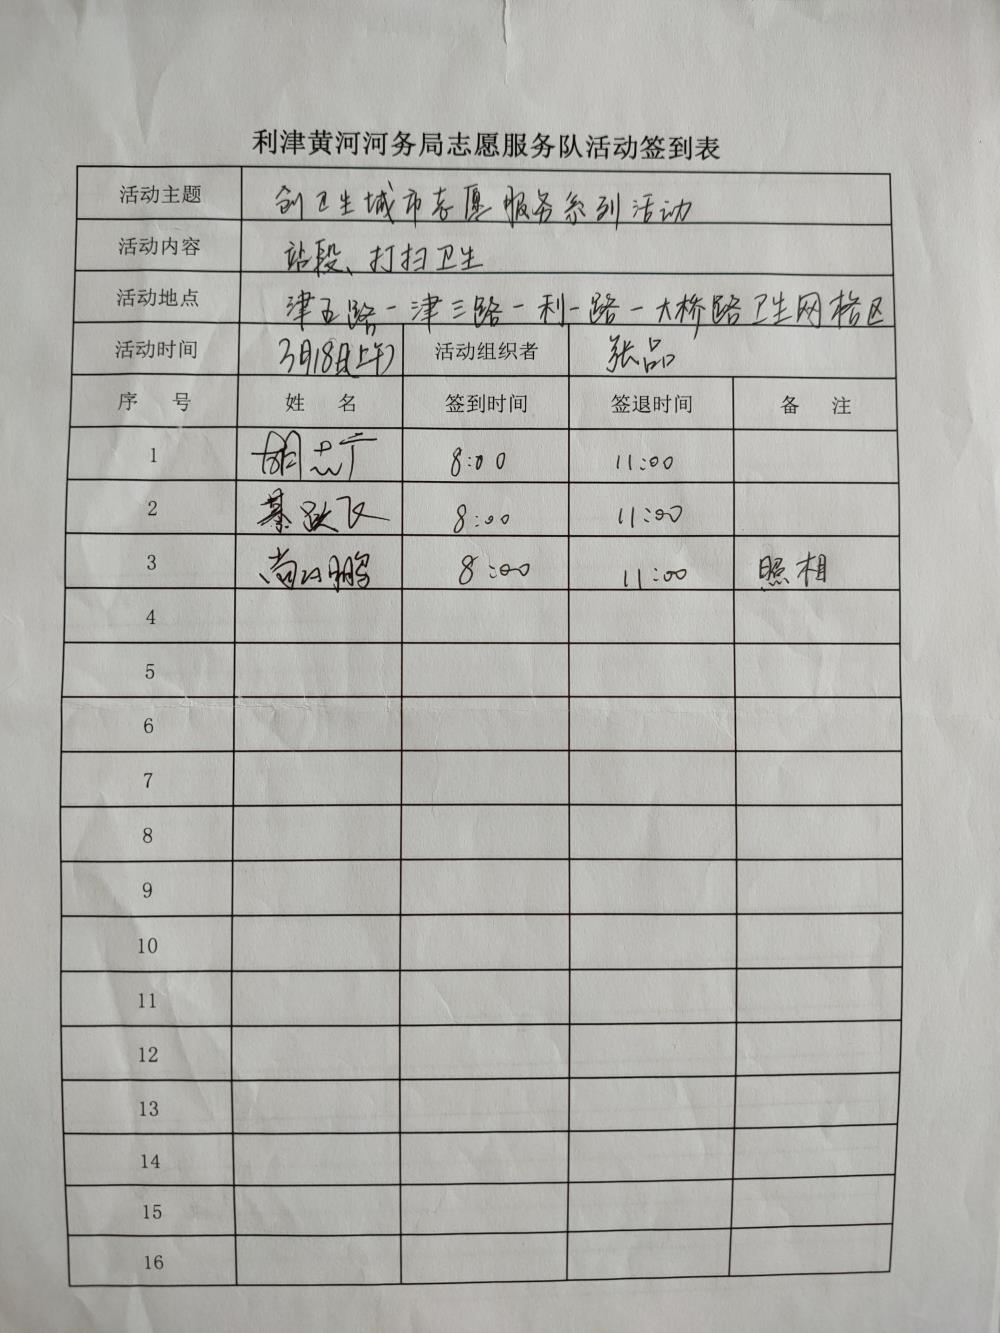 利津黄河河务局志愿服务队活动签到表
活动主题 创卫生城市志愿服务系列活动
活动内容 站段、打扫卫生
活动地点 津五路-津三路-利一路-大桥路卫生网格区
活动时间 3月18日上午 活动组织者 张品
序 号 姓 名 签到时间 签退时间 备 注
1 胡志广 8:00 11:00
2 綦跃飞 8:00 11:00
3 尚鹏 8:00 11:00 照相
4
5
6
7
8
9
10
11
12
13
14
15
16